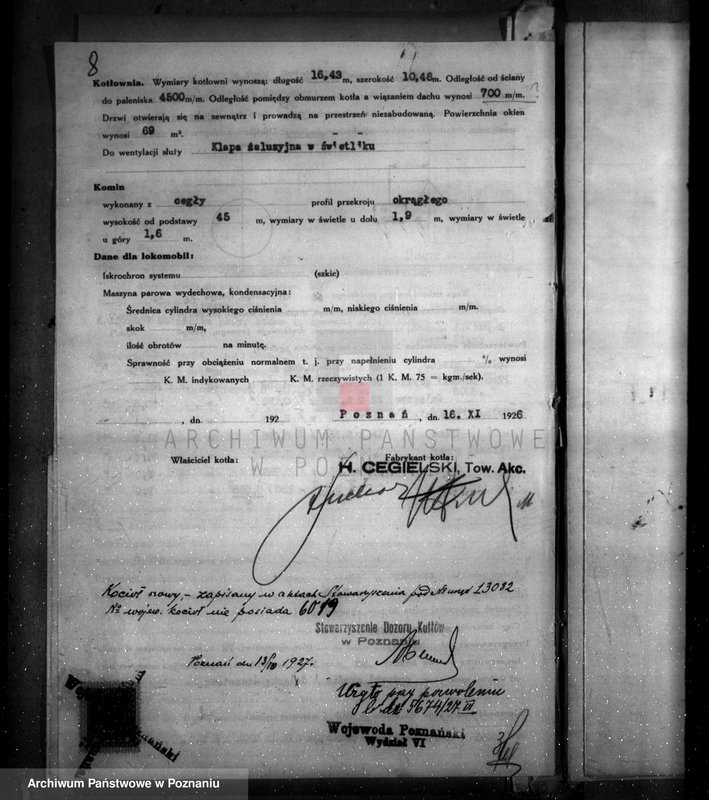 8
Kotłownia. Wymiary kotłowni wynoszą: długość 16,43 m, szerokość 10,46 m. Odległość od ściany
do paleniska 4500 m/m. Odległość pomiędzy obmurzem kotła a wiązaniem dachu wynosi 700 m/m. ?
Drzwi otwierają się na zewnątrz i prowadzą na przestrzeń niezabudowaną. Powierzchnia okien
wynosi 69 m².
Do wentylacji służy Klapa żaluzyjna w świetliku
Komin
wykonany z cegły profil przekroju okrągłego
wysokość od podstawy 45 m, wymiary w świetle u dołu 1,9 m, wymiary w świetle
u góry 1,6 m.
Dane dla lokomobil:
Iskrochron systemu (szkic)
Maszyna parowa wydechowa, kondensacyjna:
Średnica cylindra wysokiego ciśnienia m/m, niskiego ciśnienia m/m.
skok m/m,
ilość obrotów na minutę.
Sprawność przy obciążeniu normalnem t. j. przy napełnieniu cylindra % wynosi
K. M. indykowanych K. M. rzeczywistych (1 K. M. 75 = kgm./sek).
, dn. 192 Poznań , dn. 16. XI 1926
ARCHIWUM PAŃSTWOWE
W POZNANIU
Właściciel kotła: Fabrykant kotła:
H. CEGIELSKI, Tow. Akc.
Kocioł nowy, - zapisany w aktach Stowarzyszenia pod № urzęd. 23032
№ wojew. kocioł nie posiada 6019
Stowarzyszenie Dozoru Kotłów
w Poznaniu
Poznań dn 13/IV 1927.
pozwoleniu
Wojewoda Poznański
Wydział VI
Archiwum Państwowe w Poznaniu